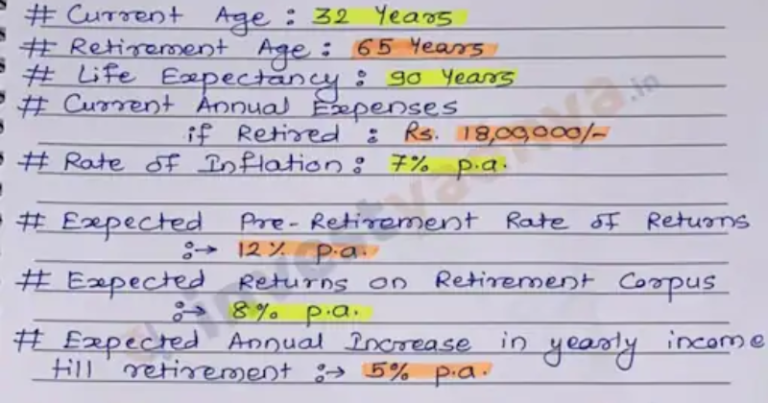 # Current Age : 32 Years
# Retirement Age : 65 Years
# Life Expectancy : 90 Years
# Current Annual Expenses
if Retired : Rs. 18,00,000/-
# Rate of Inflation : 7% p.a.
# Expected Pre-Retirement Rate of Returns
:→ 12% p.a.
# Expected Returns on Retirement Corpus
:→ 8% p.a.
# Expected Annual Increase in yearly income
till retirement :→ 5% p.a.
investyadnya.in